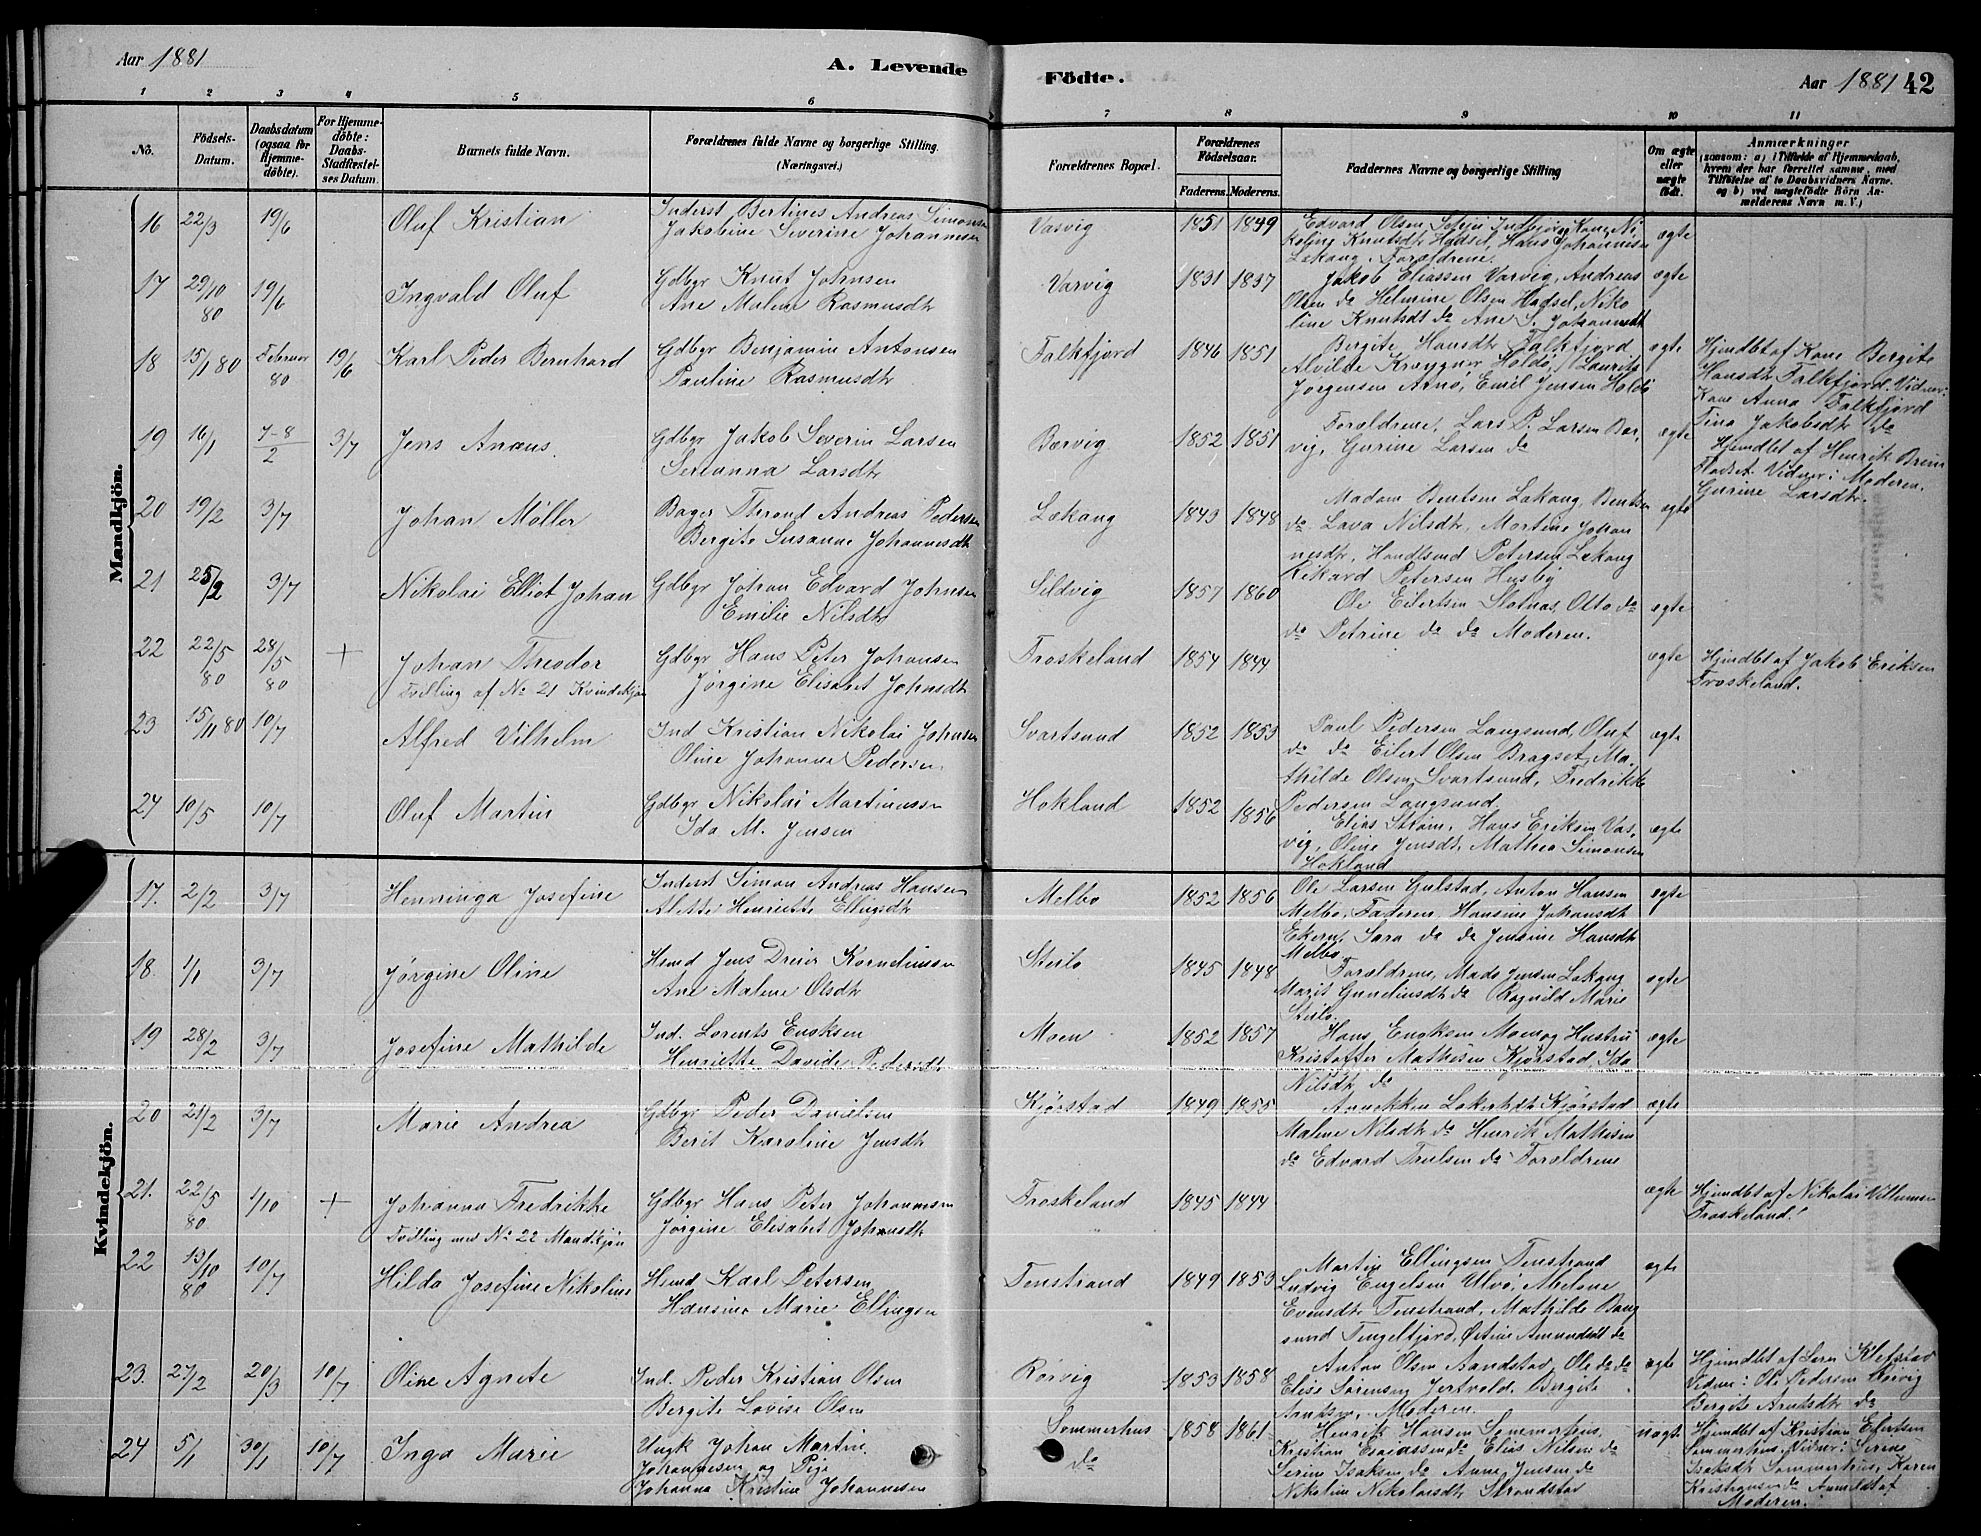 Aar 1881
A. Levende Födte.
Aar 1881 42
1 2 3 4 5 6 7 8 9 10 11
No.
Födsels-Datum.
Daabsdatum (ogsaa for Hjemme-döbte).
For Hjemme-döbte: Daabs-Stadfæstel-ses Datum.
Barnets fulde Navn.
Forældrenes fulde Navne og borgerlige Stilling. (Næringsvei.)
Forældrenes Bopæl.
Forældrenes Födselsaar.
Faderens. Moderens.
Faddernes Navne og borgerlige Stilling
Om ægte eller uægte födt.
Anmærkninger
(saasom: a) i Tilfælde af Hjemmedaab,
hvem der har forrettet samme, med
Tilföielse af to Daabsvidners Navne.
og b) ved uægtefödte Börn An-
melderens Navn m. V.)
Mandkjön.
16 22/3 19/6 Oluf Kristian
Inderst Bertines Andreas Simonsen
Jakobine Severine Johannesen
Vasvig 1851 1849
Edvard Olsen
Koline Knutsdtr Hadsel, Hans Johannesen
Lekang, Forældrene.
ægte
17 29/10 80 19/6 Ingvald Oluf
Gdbgr Knut Johnsen
Ane Malene Rasmusdtr
Varvig 1831 1837
Jakob Eliassen Varvig, Andreas
Olsen do Helmine Olsen Hadsel, Niko
line Knutsdt do Ane S. Johannesdt
ægte
18 15/1 80 Februar 80 19/6 Karl Peder Bernhard
Gdbgr Benjamin Antonsen
Pauline Rasmusdtr
Falkfjord 1846 1851
Bergite Hansdtr Falkfjord
Alvilde Krøygner Holdö, Laurits
Jørgensen Arnö, Emil Jensen Holdö
ægte
Hjmdbt af Kone Bergite
Hansdtr Falkfjord. Vidner:
Kone Anna Falkfjord
Tina Jakobsdtr do
19 16/1 7-8/2 3/7 Jens Anæus.
Gdbgr Jakob Severin Larsen
Serianna Larsdtr
Børvig 1852 1851
Forældrene, Lars P. Larsen Bør,
vig, Gurine Larsen do
ægte
Hjmdbt af Henrik Brun
Fladset. Vidner: Moderen.
Gurine Larsdtr.
20 19/2 3/7 Johan Møller
Bager Thrond Andreas Pedersen
Bergite Susanne Johannesdt
Lekang 1843 1848
Madam Bentsen Lekang, Bentsen
do Lava Nilsdtr, Martine Johan
nesdtr, Handlsmd Petersen Lekang
Rikard Petersen Husby
ægte
21 25/2 3/7 Nikolai Elliot Johan
Gdbgr Johan Edvard Johnsen
Emilie Nilsdtr
Seldvig 1857 1860
Ole Eilertsen Slotnæs, Otto do
do Petrine do do Moderen.
ægte
22 22/5 80 28/5 80 + Johan Theodor
Tvilling af No 21 Kvindekjön
Gdbgr Hans Peter Johansen
Jørgine Elisabet Johnsdtr
Froskeland 1854 1844
ægte
Hjmdbt af Jakob Eriksen
Froskeland.
23 15/11 80 10/7 Alfred Vilhelm
Ind Kristian Nikolai Johnsen
Oline Johanna Pedersen
Svartsund 1852 1853
Paul Pedersen Langsund, Oluf
do do Eilert Olsen Bragset, Ma-
thilde Olsen, Svartsund, Fredrikke
Pedersen Langsund
ægte
24 10/5 10/7 Oluf Martin
Gdbgr Nikolai Martinussen
Ida M. Jensen
Hokland 1852 1856
Elias Strøm, Hans Eriksen Vas,
vig, Oline Jensdt, Mathea Simonsen
Hokland
ægte
Kvindekjön.
17. 2/2 3/7 Henninga Josefine
Inderst Simon Andreas Hansen
Alette Henriette Ellingsdtr
Melbo 1852 1856
Ole Larsen Gulstad, Anton Hansen
Melbo, Faderen, Hansine Johansdtr
Ekern, Sara do do Jensine Hansdtr
Melbo
ægte
18. 1/1 3/7 Jørgine Oline
Hsmd Jens Dreier Korneliussen
Ane Malene Olsdtr
Steilo 1845 1848
Forældrene, Mads Jensen Lekang
Marit Gundersdtr do Ragnild Marie
Steilo.
ægte
19 28/2 3/7 Josefine Mathilde
Ind. Lorents Enoksen
Henriette Davide Pedersdtr
Moen 1852 1857
Hans Enoksen Moen og Hustru
Kristoffer Mathisen Kjørstad, Ida
Nilsdtr do
ægte
20 21/2 3/7 Marie Andrea
Gdbgr Peder Danielsen
Berit Karoline Jensdtr
Kjørstad 1849 1855
Annekken Lekertsdtr Kjørstad
Malene Nilsdtr do Henrik Mathisen
do Edvard Trulsen do Forældrene
ægte
21. 22/5 80 1/10 + Johanna Fredrikke
Tvilling med No 22 Mandkjön
Gdbgr Hans Peter Johannesen
Jørgine Elisabet Johnsdtr
Froskeland 1845 1844
ægte
Hjmdbt af Nikolai Villumsen
Froskeland.
22 13/10 80 10/7 Hilda Josefine Nikoline
Hsmd Karl Petersen
Hansine Marie Ellingsen
Tenstrand 1849 1853
Martin Ellingsen Tenstrand
Ludvig Engelsen Ulvö, Melsne
Evensdtr Tenstrand, Mathilde Bang
sund Tengelfjord, Østine Amundsdt do
ægte
23. 27/2 20/3 10/7 Oline Agnete
Ind. Peder Kristian Olsen
Bergite Lovise Olsen
Rörvig 1853 1858
Anton Olsen Aandstad, Ole do do
Elise Sørensen Jertvold. Bergite
Arntsen, Moderen.
ægte
Hjmdbt af Lærer Klefstad
Vidner: Ole Pedersen Rörvig
Bergite Arntsdtr do
24 5/1 30/1 10/7 Inga Marie
Ungk Johan Martin
Johannesen og Pige
Johanna Kristine Johannesen
Sommerhus do 1858 1861
Henrik Hansen Sommerhus,
Kristian Esaiassen do Elias Nilsen do
Serine Isaksen do Anne Jensen do
Nikoline Nikolaisdtr Strandstad
uægte
Hjmdbt af Kristian Elertsen
Sommerhus, Vidner: Serine
Isaksdtr Sommerhus, Karen
Kristiansen do Anmeldt af
Moderen.